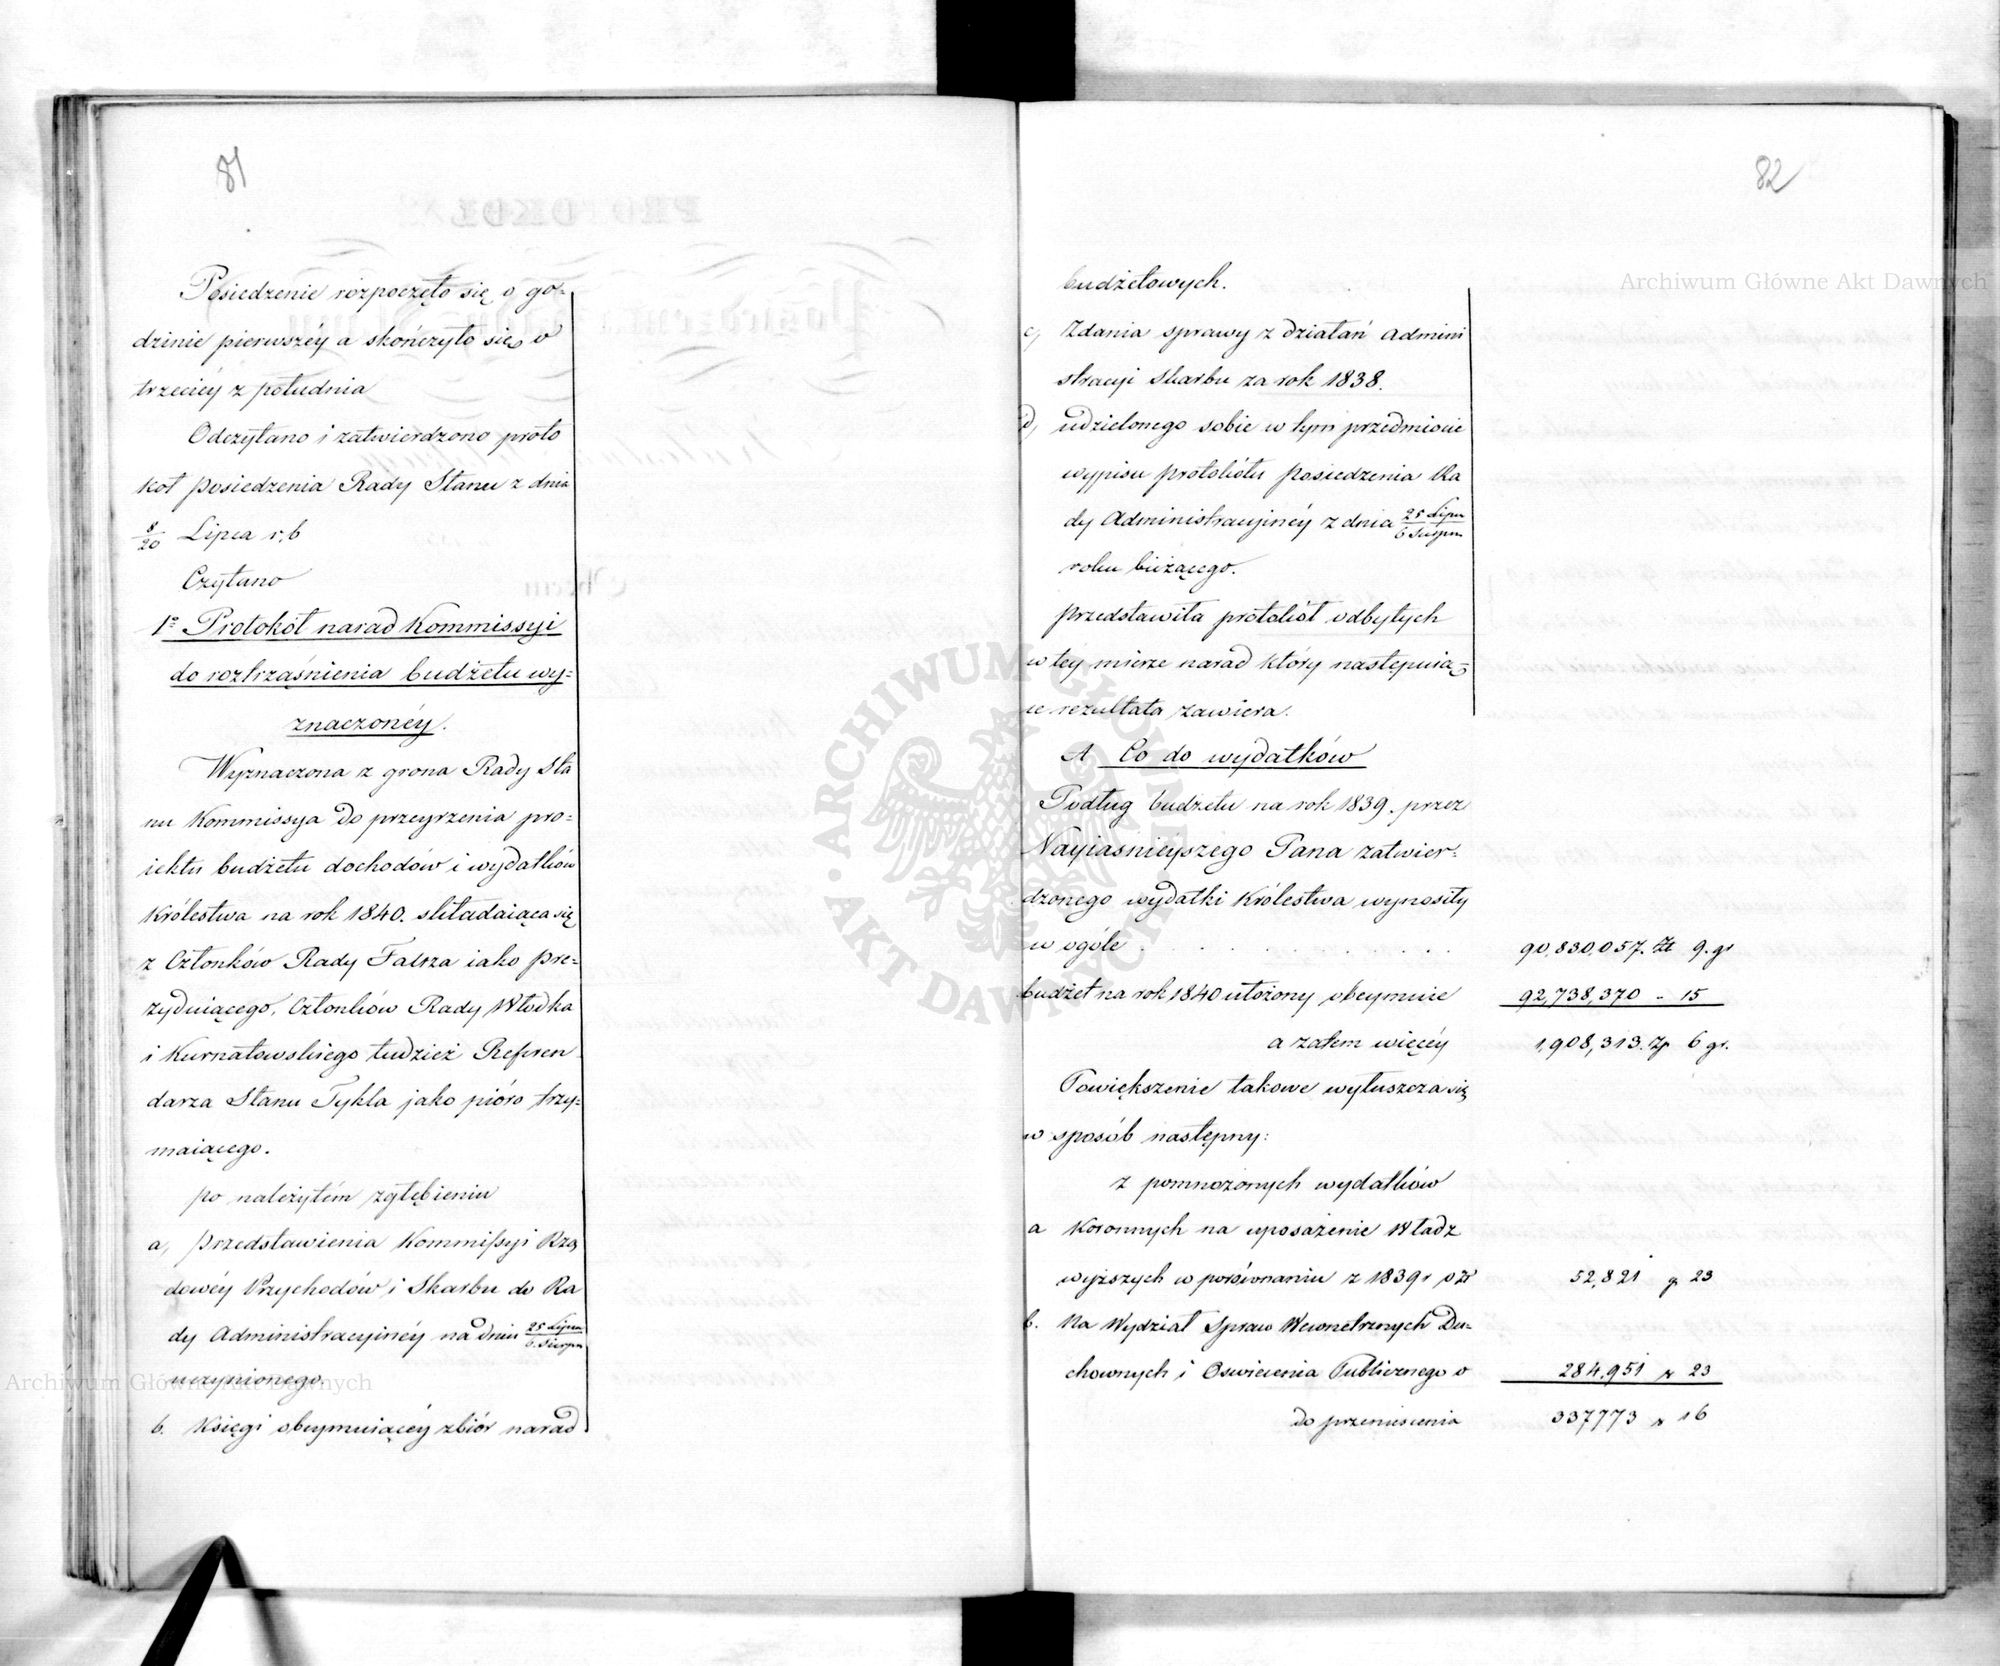 81
Posiedzenie rozpoczęło się o go-
dzinie pierwszéy a skończyło się o
trzeciéy z południa
Odczytano i zatwierdzono proto
kół posiedzenia Rady Stanu z dnia
8/20 Lipca r, b
Czytano
1o Protokół narad Kommissyi
do roztrząśnienia budżetu wy-
znaczonéy.
Wyznaczona z grona Rady Sta
nu Kommissya do przeyrzenia pro-
iektu budżetu dochodów i wydatków
Królestwa na rok 1840. składaiąca się
z Członków Rady Falsza iako pre-
zyduiącego, Członków Rady Włodka
i Kurnatowskiego tudzież Referen
darza Stanu Tykla jako pióro trzy-
maiącego.
po należytém zgłębieniu
a, przedstawienia Kommissyi Rzą
dowéy Przychodów i Skarbu do Ra
dy Administracyinéy na dniu 25 Lipca/6 Sierpn
uczynionego.
b. Księgi obeymuiącéy zbiór narad
82
budżetowych.
c, Zdania sprawy z działań Admini
stracyi Skarbu za rok 1838.
d, udzielonego sobie w tym przedmiocie
wypisu protokółu posiedzenia Ra
dy Administracyinéy z dnia 25 Lipca/6 Sierpn
roku bieżącego.
przedstawiła protokół odbytych
w téy mierze narad który następuią-
ce rezultata zawiera.
A Co do wydatków
Podług budżetu na rok 1839. przez
Nayiaśnieyszego Pana zatwier-
dzonego wydatki Królestwa wynosiły
w ogóle . . . . . . . . 90,830,057. Zł 9. gr
budżet na rok 1840 ułożony obeymuie 92,738,370 - 15
a zatem więcéy 1,908,313. Zp 6 gr.
Powiększenie takowe wyłuszcza się
w sposób następny:
z pomnożonych wydatków
a Koronnych na uposażenie Władz
wyższych w porównaniu z 1839 r o Zł 52,821 g 23
b. Na Wydział Spraw Wewnetrznych Du-
chownych i Oswiecenia Publicznego o 284,951 „ 23
do przeniesienia 337773 „ 16
Archiwum Główne Akt Dawnych
Archiwum Główne Akt Dawnych
· ARCHIWUM GŁÓWNE · AKT DAWNYCH